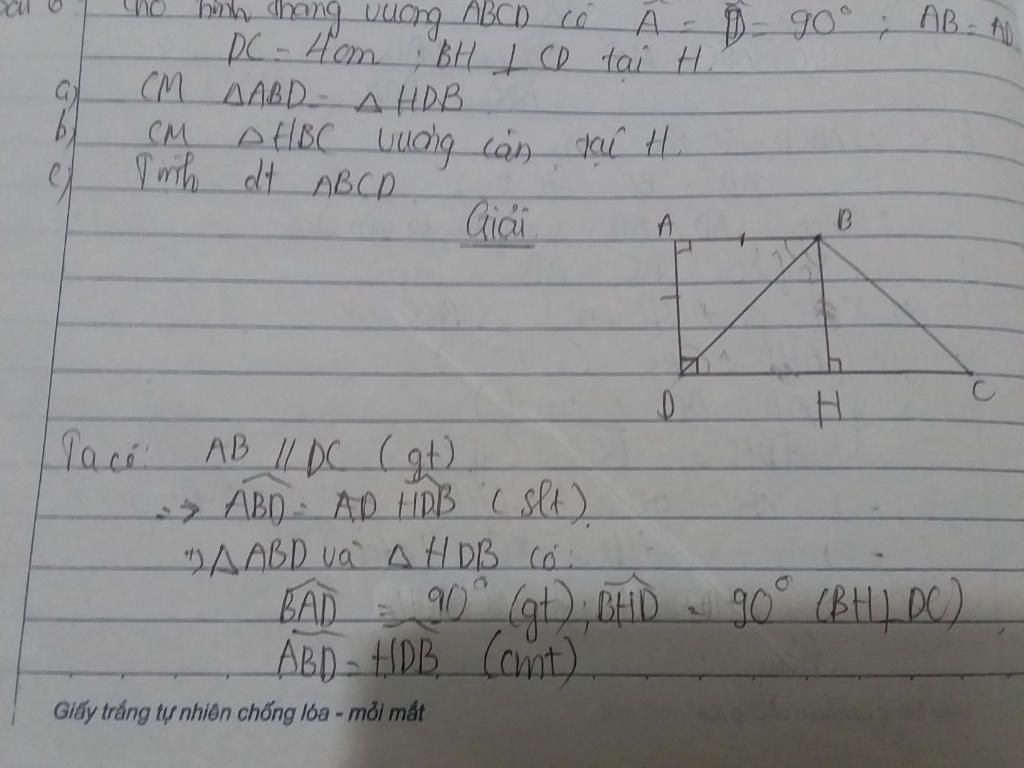 hình thang vuông ABCD có Â = D̂ = 90° ; AB = AD
DC = 4cm ; BH ⊥ CD tại H.
a) CM △ABD = △HDB
b) CM △HBC vuông cân tại H.
c) Tính dt ABCD
Giải
A B
D H C
Ta có: AB // DC (gt)
=> ABD = AD HDB (slt).
+) △ABD và △HDB có:
BAD = 90° (gt) ; BHD = 90° (BH ⊥ DC)
ABD = HDB (cmt)
Giấy trắng tự nhiên chống lóa - mỏi mắt